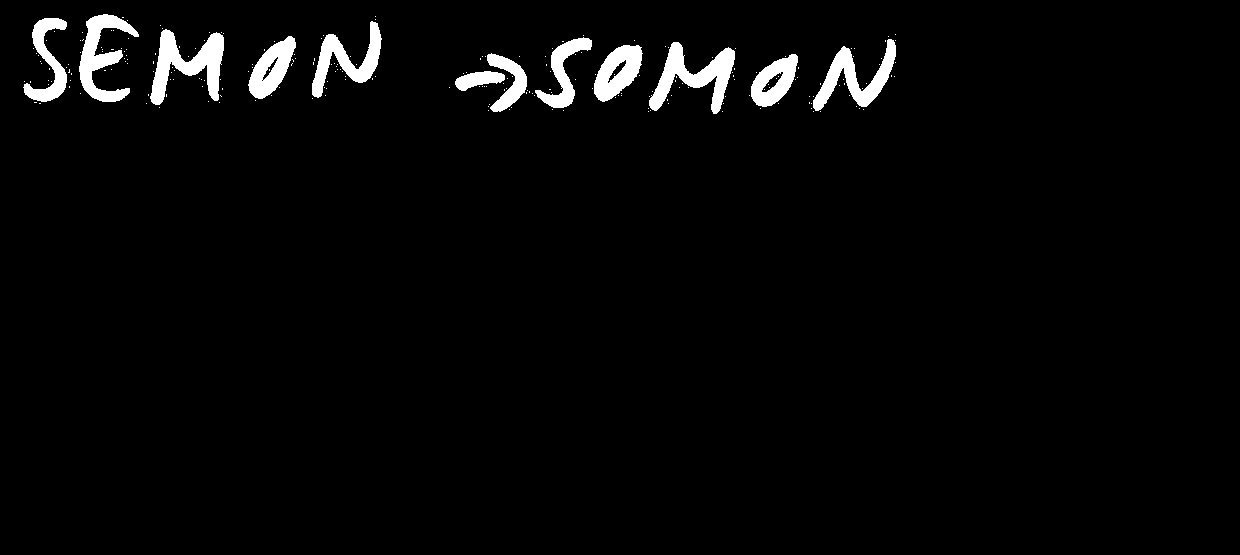 SEMON → SOMON